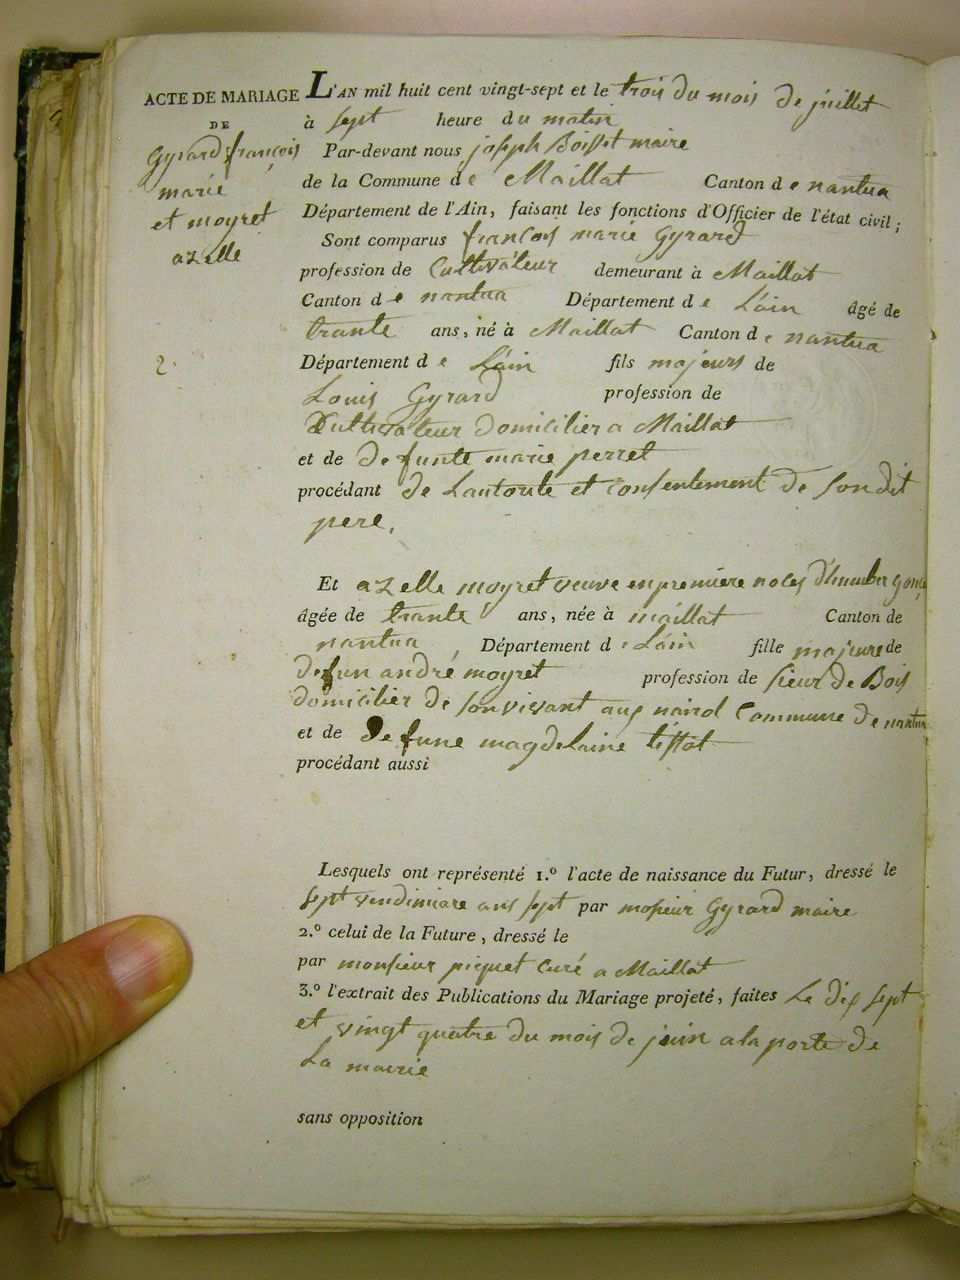 ACTE DE MARIAGE
DE
Gyrard françois
marie
et moyret
azelle
2.
L'AN mil huit cent vingt-sept et le trois du mois de juillet
à sept heure du matin
Par-devant nous joseph Boisset maire
de la Commune de Maillat Canton de nantua
Département de l'Ain, faisant les fonctions d'Officier de l'état civil;
Sont comparus francois marie Gyrard
profession de Cultivateur demeurant à Maillat
Canton de nantua Département de L'ain âgé de
trante ans, né à Maillat Canton de nantua
Département de L'ain fils majeurs de
Louis Gyrard profession de
Cultivateur domicilier a Maillat
et de defunte marie perret
procédant de Lautorité et consentement de son dit
pere,
Et azelle moyret veuve en premiere noces d'humber
âgée de trante ans, née à maillat Canton de
nantua Département de Lain fille majeure de
defun andré moyret profession de sieur de Bois
domicilier de son vivant aux neirol Commune de nantua
et de defune magdelaine tissot
procédant aussi
Lesquels ont représenté 1.º l'acte de naissance du Futur, dressé le
sept vendimiare ans sept par monsieur Gyrard maire
2.º celui de la Future, dressé le
par monsieur piquet curé a Maillat
3.º l'extrait des Publications du Mariage projeté, faites Le dix sept
et vingt quatre du mois de juin a la porte de
La mairie
sans opposition